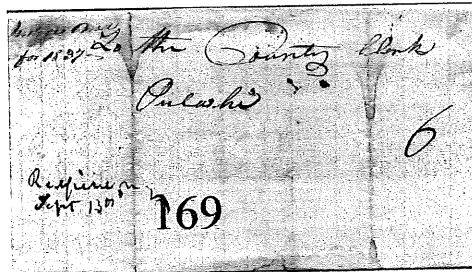 for 1837
To the County Clerk
Pulaski
6
Sept 13th
169